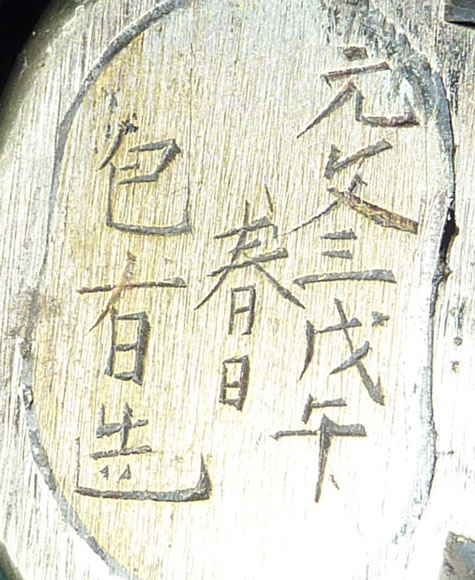 元文三戊午
春日
包有造